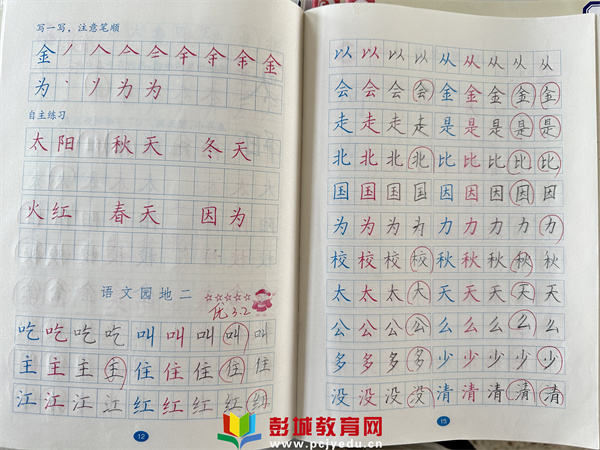 写一写，注意笔顺
金 丿 人 亼 亼 仐 仐 余 金
为 丶 丷 为 为
自主练习
太阳 秋天 冬天
火红 春天 因为
语文园地二
优 3.2
吃 吃 吃 吃 叫 叫 叫 叫 叫
主 主 主 主 住 住 住 住 住
江 江 江 江 红 红 红 红 红
12
以 以 以 以 从 从 从 从 从
会 会 会 会 金 金 金 金 金
走 走 走 走 是 是 是 是 是
北 北 北 北 比 比 比 比 比
国 国 国 国 因 因 因 因 因
为 为 为 为 力 力 力 力 力
校 校 校 校 秋 秋 秋 秋 秋
太 太 太 太 天 天 天 天 天
公 公 公 公 么 么 么 么 么
多 多 多 多 少 少 少 少 少
没 没 没 没 清 清 清 清 清
15
彭城教育网
www.pcjyedu.cn